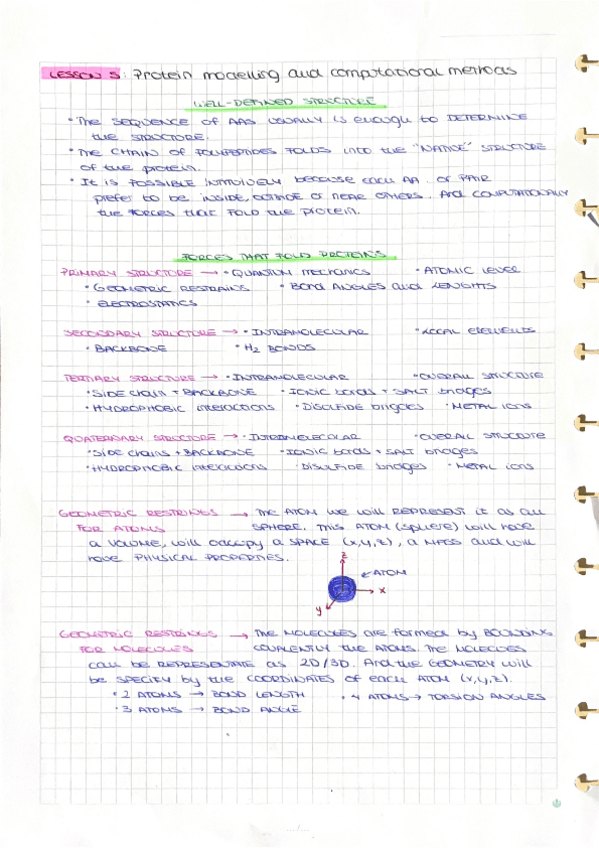 LESSON 5: Protein modelling and computational methods
WELL-DEFINED STRUCTURE
• The SEQUENCE OF AAS USUALLY is enough to DETERMINE
the STRUCTURE.
• The CHAIN OF POLYPEPTIDES FOLDS into the "NATIVE" STRUCTURE
of the protein.
• It is POSSIBLE intuively because each AA or PAIR
prefer to be inside, outside or near others. And COMPUTATIONALLY
the forces that FOLD the protein.
FORCES THAT FOLD PROTEINS
PRIMARY STRUCTURE → • QUANTUM mechanics • ATOMIC level
• GEOMETRIC RESTRAINS • Bond ANGLES and LENGHTS
• ELECTROSTATICS
SECONDARY STRUCTURE → • INTRAMOLECULAR • LOCAL elements
• BACKBONE • H2 BONDS
TERTIARY STRUCTURE → • INTRAMOLECULAR • OVERALL STRUCTURE
• SIDE chain + BACKBONE • IONIC bonds + SALT bridges
• HYDROPHOBIC interactions • DISULFIDE bridges • METAL ions
QUATERNARY STRUCTURE → • INTERMOLECULAR • OVERALL STRUCTURE
• Side chains + BACKBONE • IONIC bonds + SALT bridges
• HYDROPHOBIC interactions • Disulfide bridges • METAL ions
GEOMETRIC RESTRINGS → The ATOM we will REPRESENT it as an
FOR ATOMS SPHERE. This ATOM (sphere) will have
a VOLUME, will occupy a SPACE (x,y,z), a MASS and will
have PHYSICAL PROPERTIES.
z
← ATOM
x
y
GEOMETRIC RESTRINGS → The MOLECULES are formed by BOUNDING
FOR MOLECULES COVALENTLY the ATOMS. The MOLECULES
can be REPRESENTATE as 2D/3D. And the GEOMETRY will
be SPECIFY by the COORDINATES of each ATOM (x,y,z).
• 2 ATOMS → BOND LENGTH • 4 ATOMS → TORSION ANGLES
• 3 ATOMS → BOND ANGLE